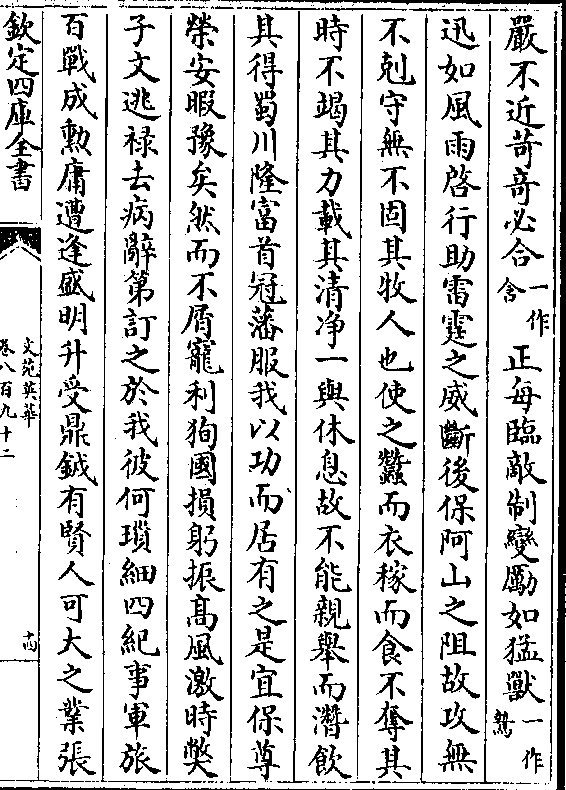 嚴不近苛竒必合一作含正每臨敵制變厲如猛獸一作鷙
迅如風雨啓行助雷霆之威斷後保阿山之阻故攻無
不剋守無不固其牧人也使之蠶而衣稼而食不奪其
時不竭其力載其清净一與休息故不能親舉而潛飲
其得蜀川隆富首冠藩服我以功而居有之是宜保尊
榮安暇豫矣然而不屑寵利狥國損躬振髙風激時獘
子文逃禄去病辭第訂之於我彼何瑣細四紀事軍旅
百戰成勲庸遭逢盛明升受鼎鉞有賢人可大之業張
欽定四庫全書
文苑英華
卷八百九十二
十四